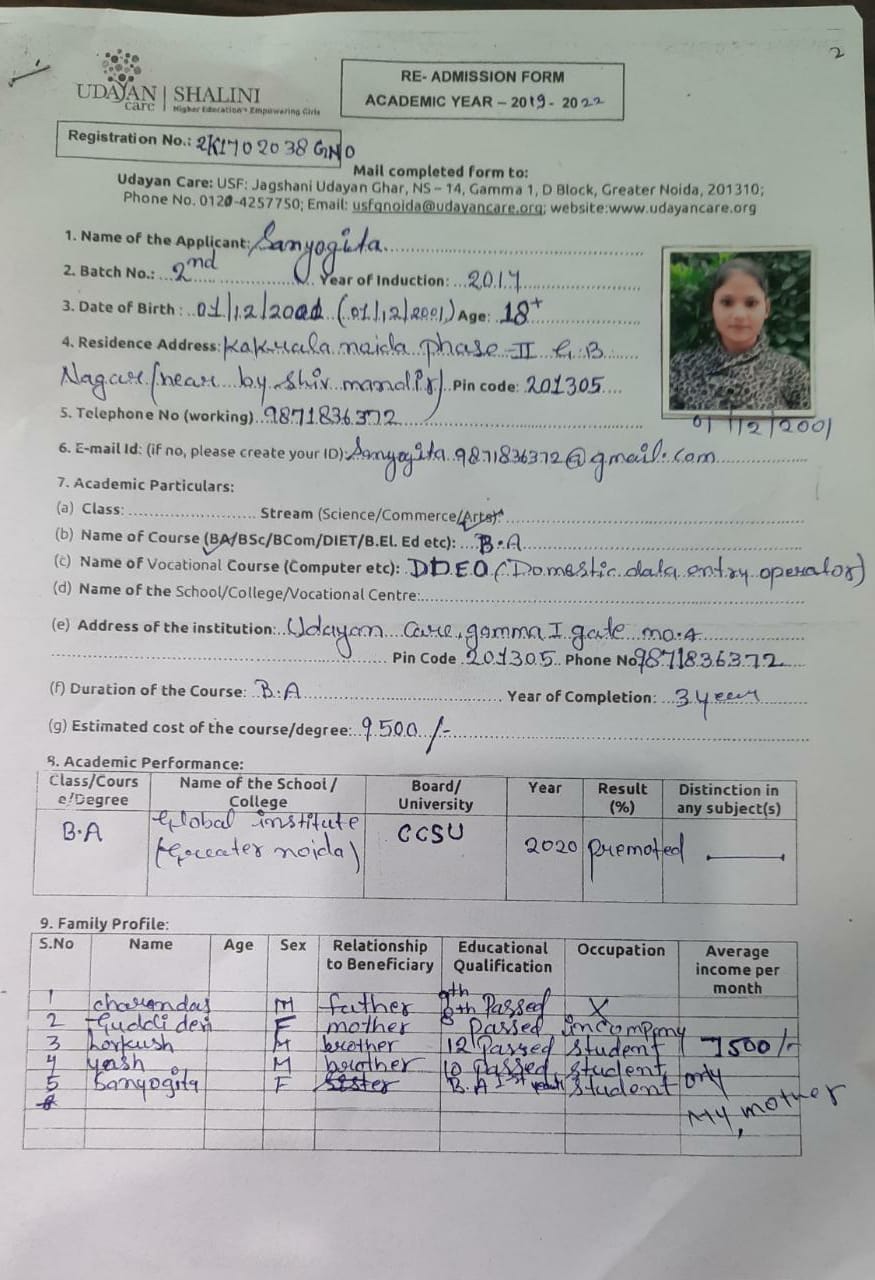 2
UDAYAN care | SHALINI
Higher Education • Empowering Girls
RE- ADMISSION FORM
ACADEMIC YEAR – 2019- 2022
Registration No.: 2K1702038 GNO
Mail completed form to:
Udayan Care: USF: Jagshani Udayan Ghar, NS – 14, Gamma 1, D Block, Greater Noida, 201310;
Phone No. 0120-4257750; Email: usfgnoida@udayancare.org; website:www.udayancare.org
1. Name of the Applicant: Sanyogita
2. Batch No.: 2nd Year of Induction: 2017
3. Date of Birth : 01/12/2001 (01/12/2001) Age: 18+
4. Residence Address: Kakrala noida phase-II G.B
Nagar (near by shiv mandir) Pin code: 201305
5. Telephone No (working) 9871836372
01/12/2001
6. E-mail Id: (if no, please create your ID): Sanyogita9871836372@gmail.com
7. Academic Particulars:
(a) Class: Stream (Science/Commerce/Arts):
(b) Name of Course (BA/BSc/BCom/DIET/B.El. Ed etc): B.A
(c) Name of Vocational Course (Computer etc): DDEO (Domestic data entry operator)
(d) Name of the School/College/Vocational Centre:
(e) Address of the institution: Udayan Care, gamma I gate no.4
Pin Code 201305 Phone No 9871836372
(f) Duration of the Course: B.A Year of Completion: 3 year
(g) Estimated cost of the course/degree: 9500/-
8. Academic Performance:
Class/Course/Degree Name of the School / College Board/ University Year Result (%) Distinction in any subject(s)
B.A Global institute (Greater noida) CCSU 2020 premoted —
9. Family Profile:
S.No Name Age Sex Relationship to Beneficiary Educational Qualification Occupation Average income per month
1 charandas M father 9th Passed X
2 Guddi devi F mother 8th Passed in company
3 M brother 12 Passed student 7500/-
4 yash M brother 10 Passed student
5 Sanyogita F sister B.A Ist student only
My mother